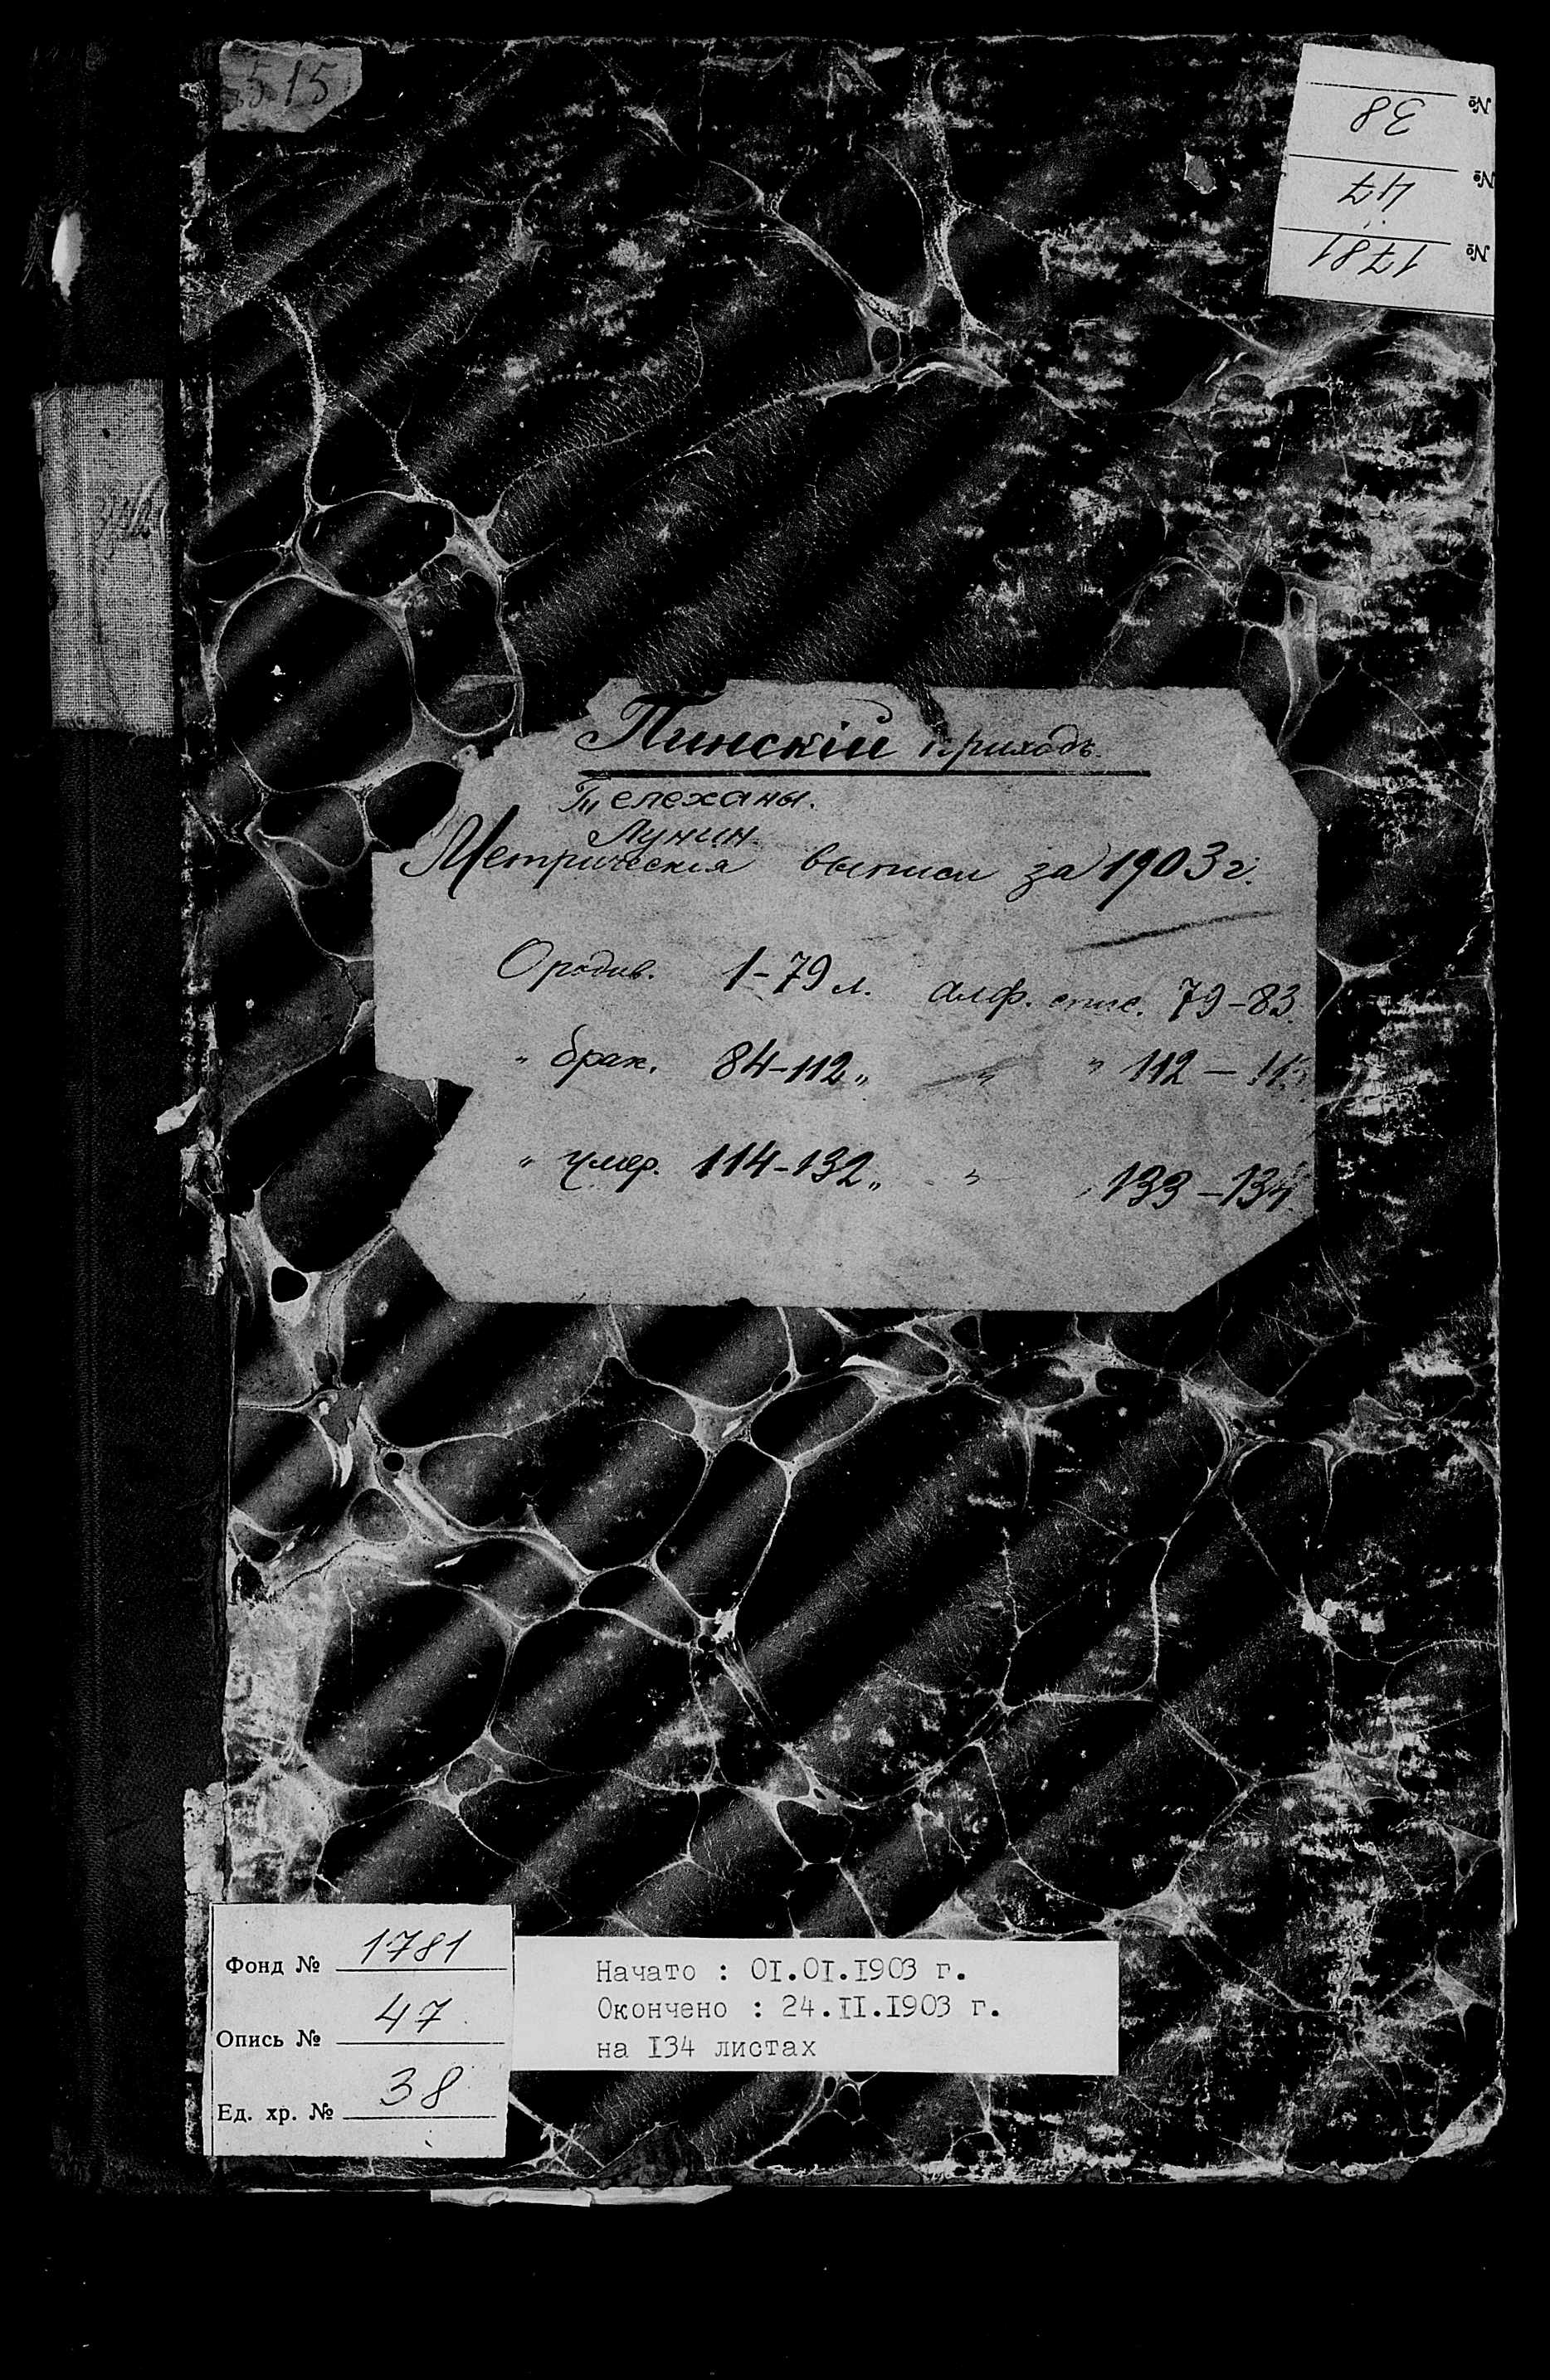 515
№ 38
№ 47
№ 1781
Пинскій приходъ.
Телеханы.
Лунин.
Метрическия выписи за 1903 г.
О родив. 1-79 л. алф. спис. 79-83.
" брак. 84-112 " " " 112 —
" умер. 114-132 " " 133-134.
Фонд № 1781
Опись № 47
Ед. хр. № 38
Начато : 01.01.1903 г.
Окончено : 24.II.1903 г.
на 134 листах